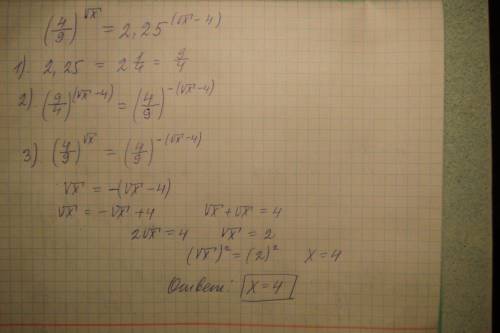 (4/9)^√x = 2,25^(√x-4)
1) 2,25 = 2 1/4 = 9/4
2) (9/4)^(√x-4) = (4/9)^-(√x-4)
3) (4/9)^√x = (4/9)^-(√x-4)
√x = -(√x-4)
√x = -√x+4 √x+√x = 4
2√x = 4 √x = 2
(√x)² = (2)² x = 4
Ответ: x = 4